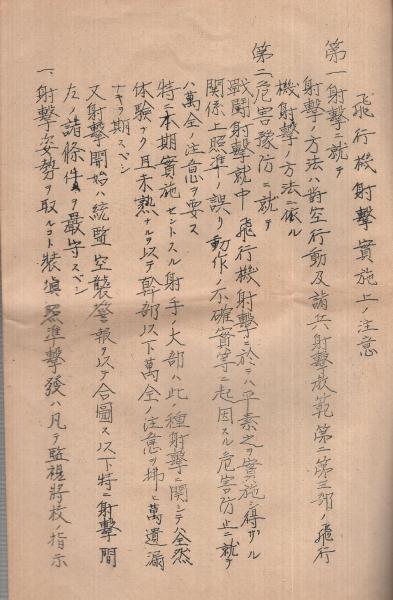 飛行機射撃實施上ノ注意
第一 射撃ニ就テ
射撃ノ方法ハ對空行動及諸兵射撃教範第二第三部ノ飛行
機射撃ノ方法ニ依ル
第二 危害豫防ニ就テ
戰鬪射撃就中飛行機射撃ニ於テハ平素之ヲ實施シ得サル
関係上照準ノ誤リ動作ノ不確實等ニ起因スル危害防止ニ就テ
ハ萬全ノ注意ヲ要ス
特ニ本期實施セントスル射手ノ大部ハ此ノ種射撃ニ関シテハ全然
体験ナク且未熟ナルヲ以テ幹部以下萬全ノ注意ヲ拂ヒ萬遺漏
ナキヲ期スベシ
又射撃開始ハ統監空襲警報ヲ以テ合圖ス以下特ニ射撃間
左ノ諸條件ヲ嚴守スベシ
一、射撃姿勢ヲ取ルコト装填照準撃發ハ凡テ監視將校ノ指示